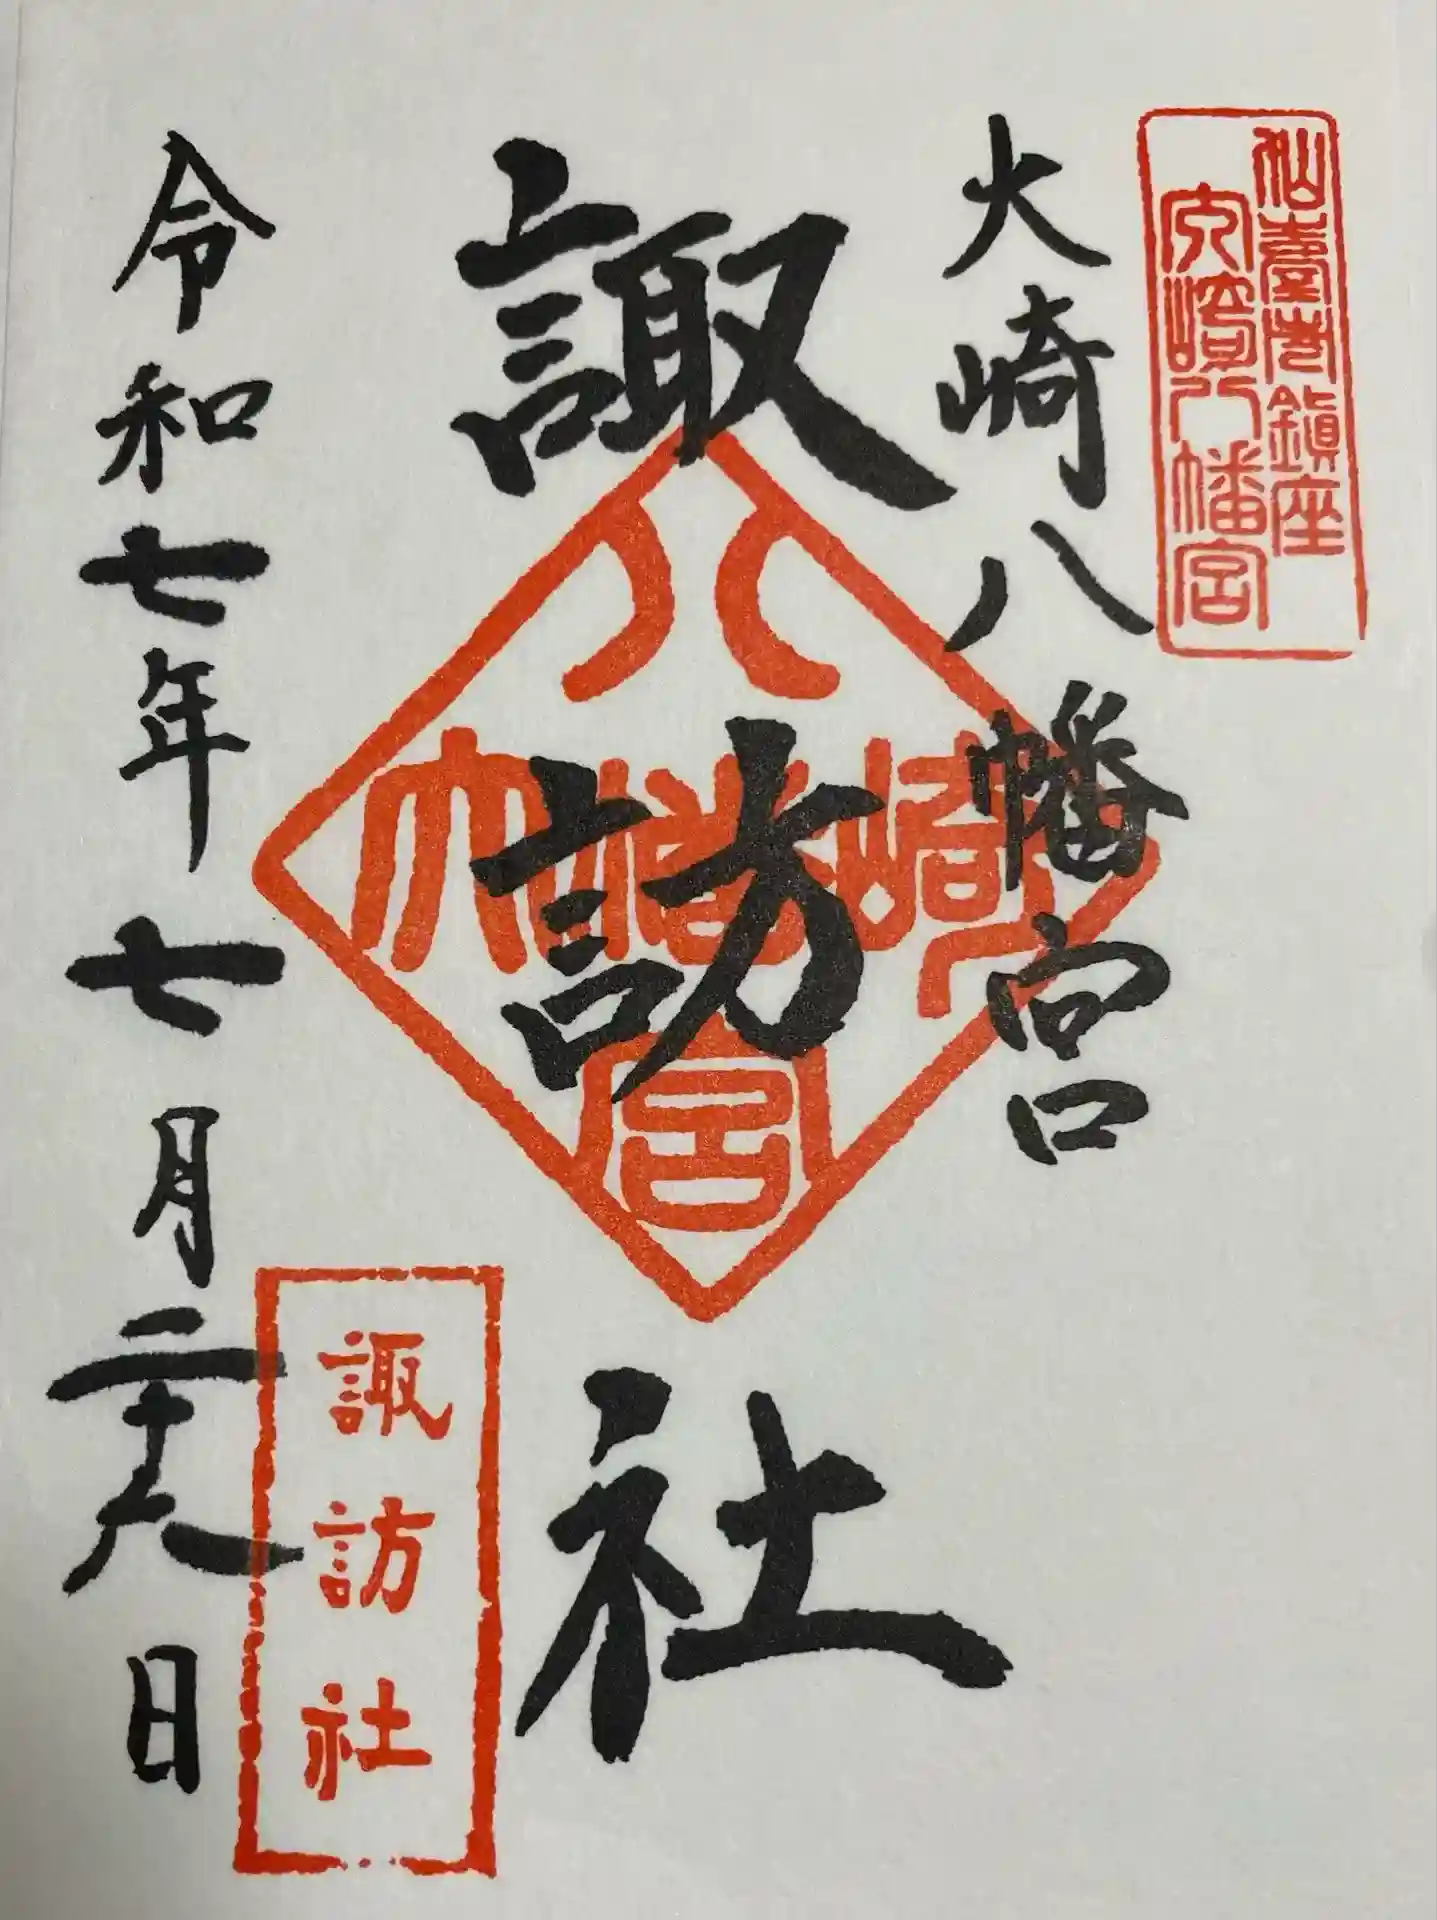 仙臺市鎮座
大崎八幡宮
大崎八幡宮
諏訪社
大崎八幡宮
令和七年七月二十八日
諏訪社